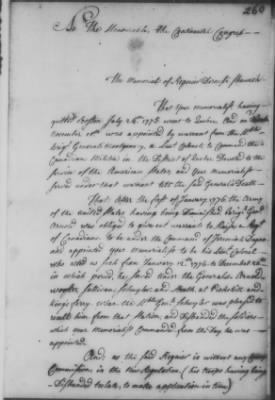 260
To The Honorable, the Continental Congress
The Memorial of Regnier
That Your Memorialist having
quitted Boston July 26th 1775 went to Quebec And in
November was appointed by warrant from the
Brigr General Montgomery, a Lieut Colonel to Command the
Canadian Militia in the District of Quebec Devoted to the
service of the American States, and Your Memorialist
served under that warrant till the said Generals Death
That After the first of January 1776 the Army
of the United States having being Diminished Brigr Genl
Arnold was obliged to give out warrant to Raise a Regt
of Canadians to be under the Command of Jeremiah Dugan
and appointed Your Memorialist to be his Lieut Colonel
who acted as such from January 12th 1776 to December 24th
in which period, he served under the Generals Arnold
wooster, Sullivan, Schuyler, and Heath at Peekskill and
Kings ferry when the Genl Schuyler was pleased to
recall him from that Station, and Disbanded the soldiers
which your Memorialist Commanded from the Day he was
appointed.
And as the said Regnier is without any
Commission in the New Regulation (his troops having being
Disbanded to late, to make application in time)